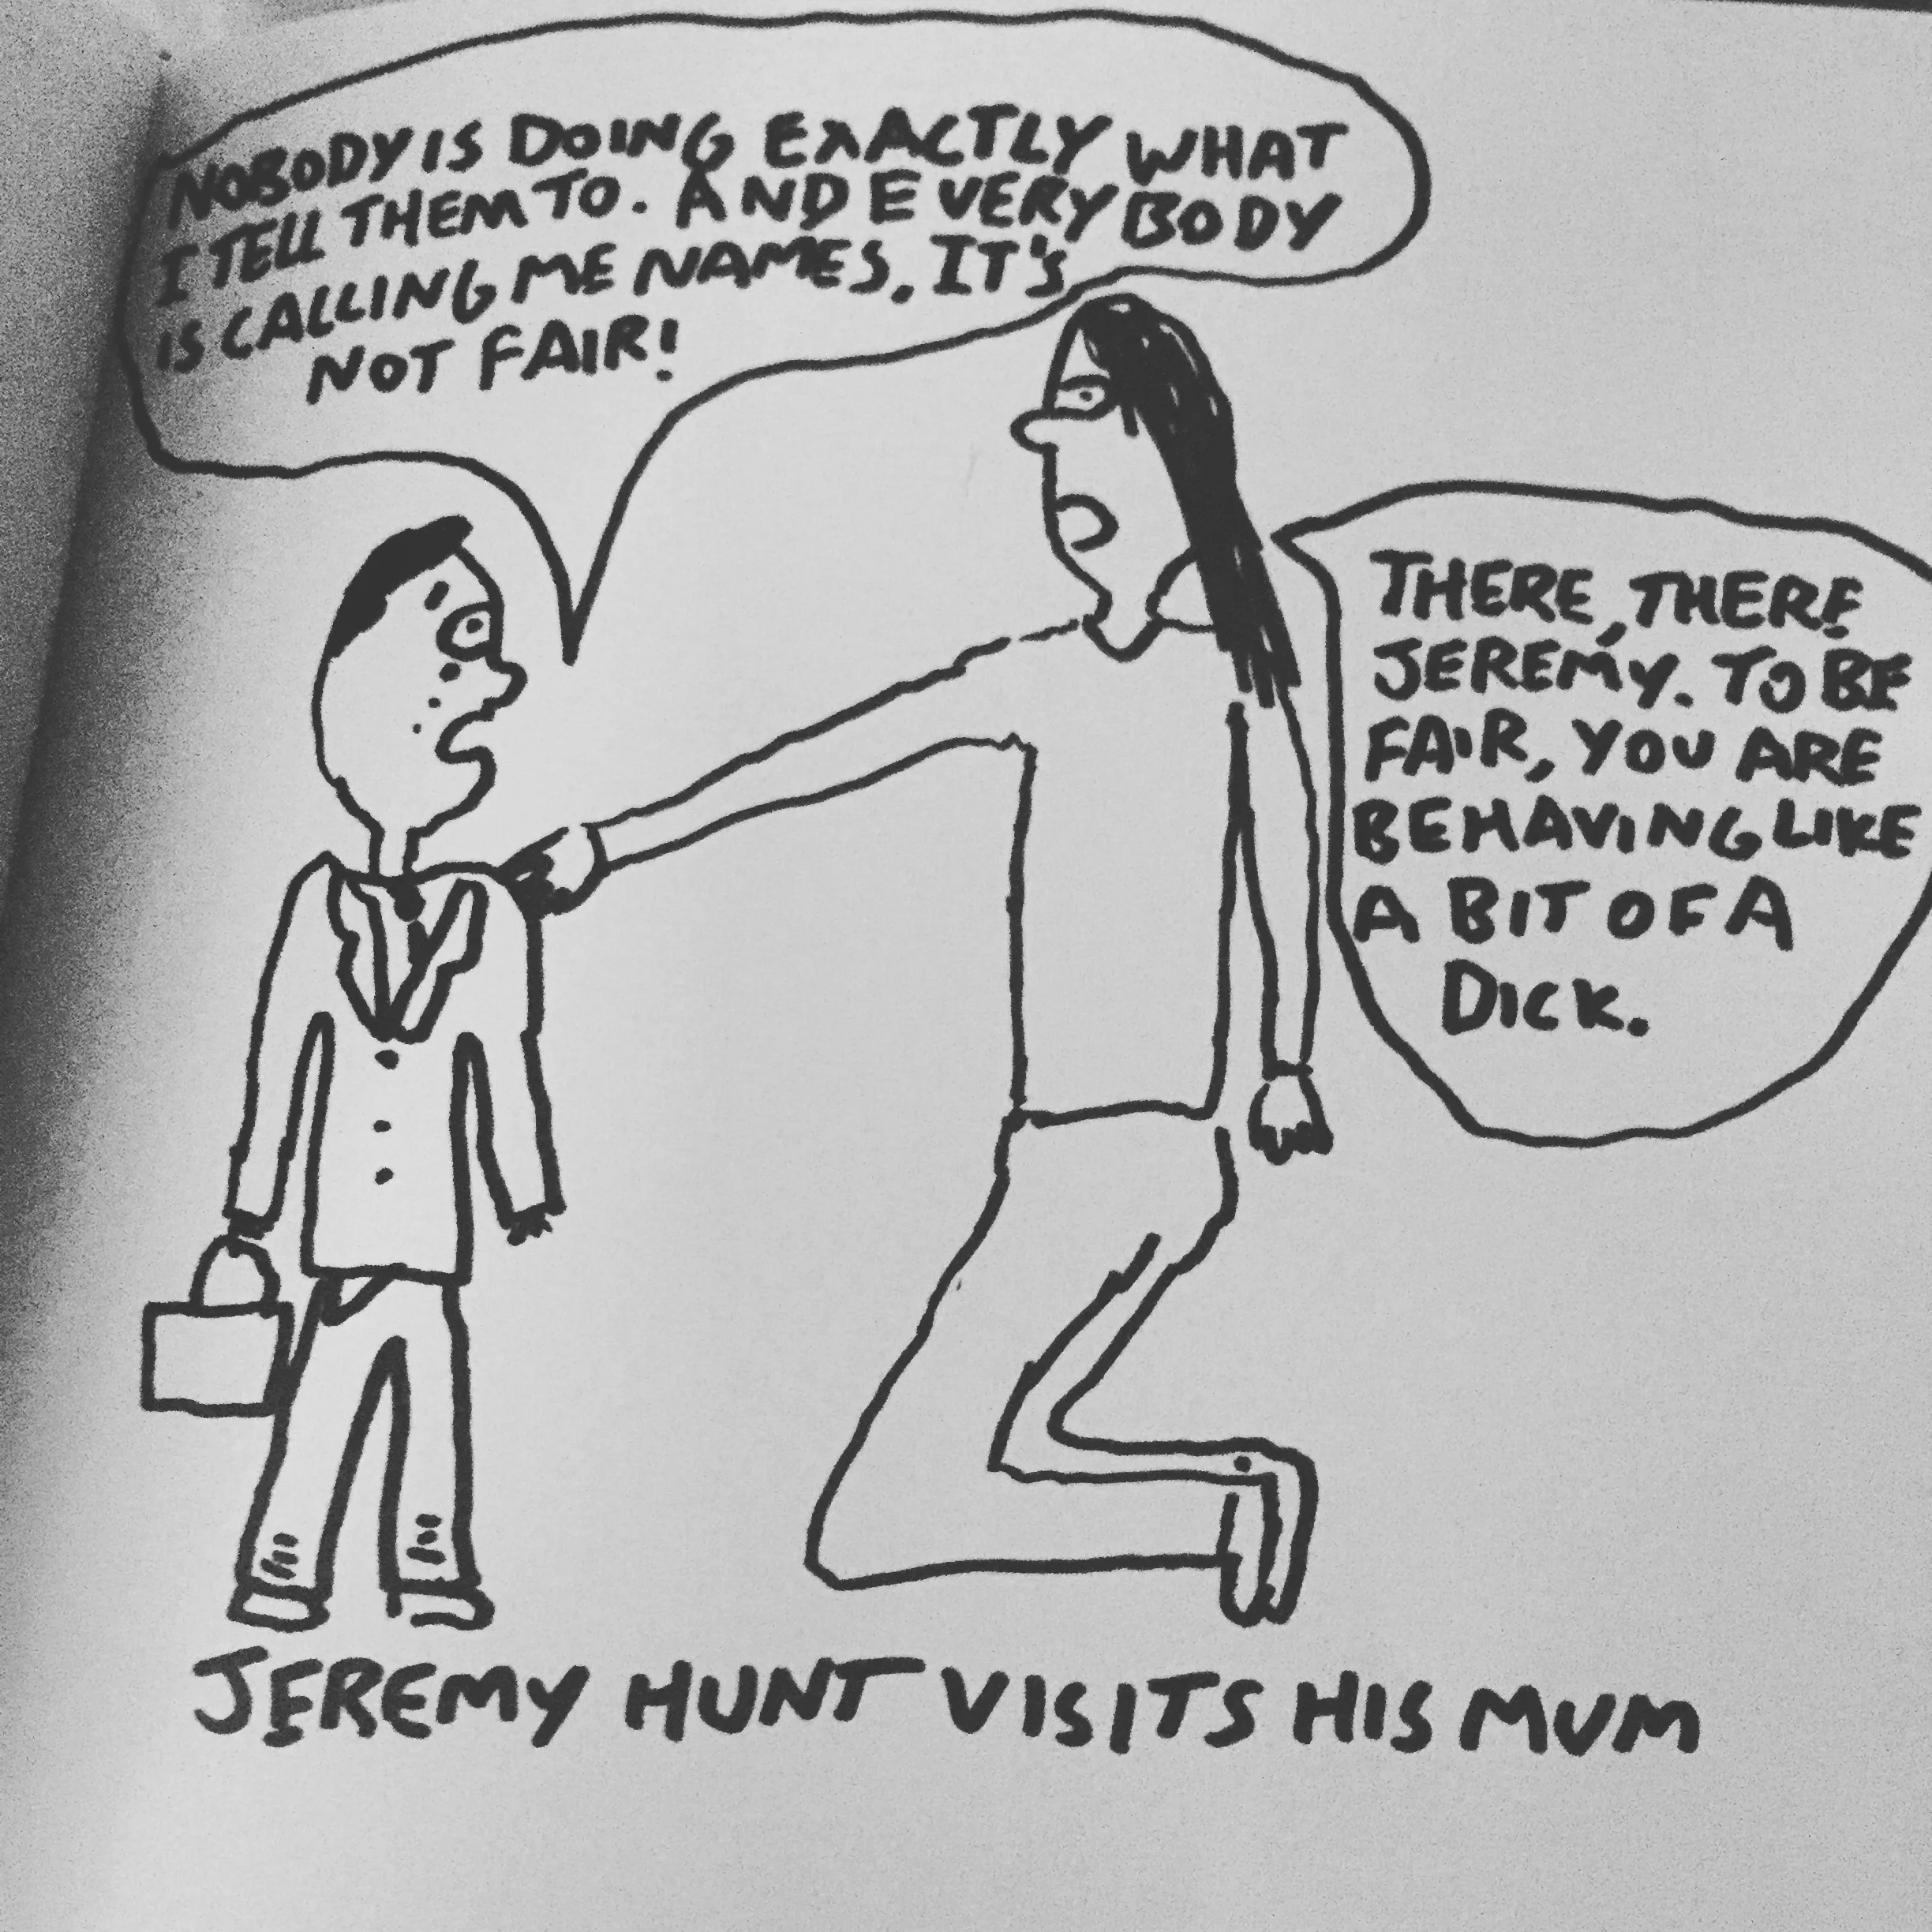 NOBODY IS DOING EXACTLY WHAT
I TELL THEM TO. AND EVERYBODY
IS CALLING ME NAMES, IT'S
NOT FAIR!
THERE, THERE
JEREMY. TO BE
FAIR, YOU ARE
BEHAVING LIKE
A BIT OF A
DICK.
JEREMY HUNT VISITS HIS MUM